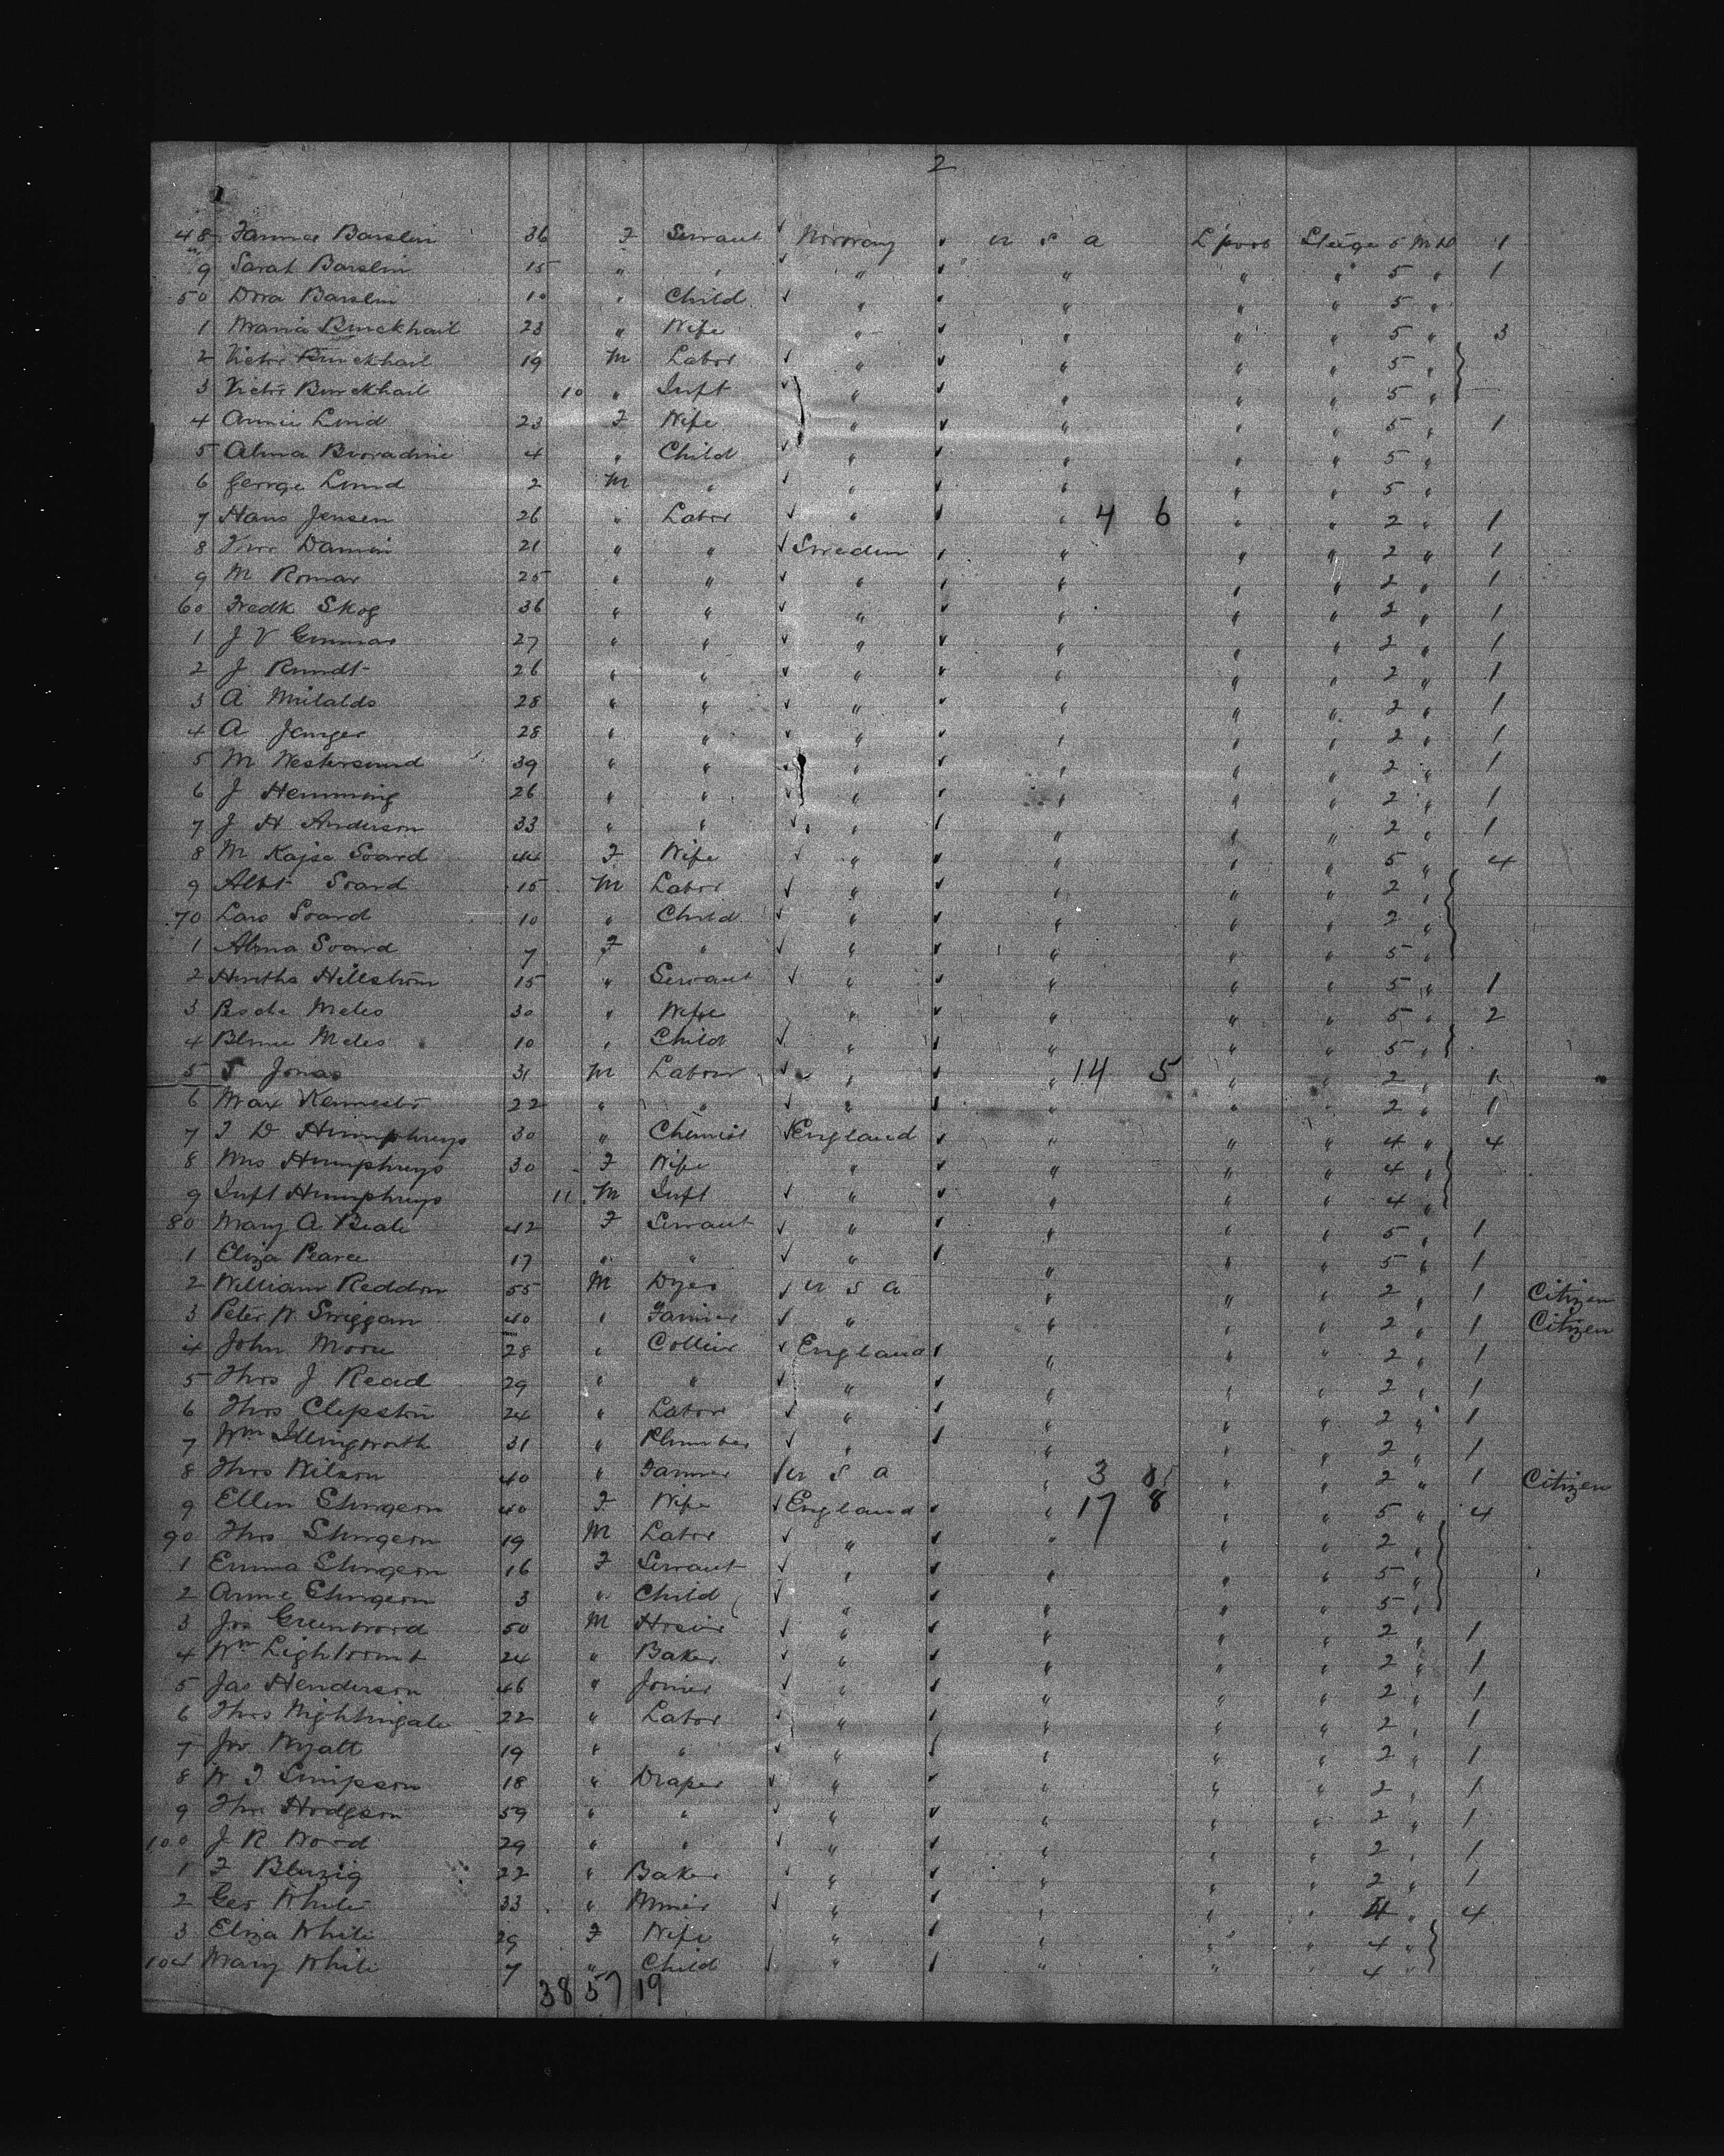 2
48 Fannie Barslin 36 F Servant Norway U S A L'pool Steege 5 M D 1
9 Sarah Barslin 15 " " " " " " 5 " 1
50 Dora Barslin 10 " Child " " " " 5 "
1 Maria Burckhail 23 " Wife " " " " 5 " 3
2 Victor Burckhail 19 M Labor " " " " 5 "
3 Victor Burckhail 10 " Inft " " " " 5 "
4 Annie Lund 23 F Wife " " " " 5 " 1
5 Alma 4 " Child " " " " 5 "
6 George Lund 2 M " " " " " 5 "
7 Hans Jensen 26 " Labor " " 4 6 " " 2 " 1
8 21 " " Sweden " " " 2 " 1
9 M Romar 25 " " " " " " 2 " 1
60 Fredk Skog 36 " " " " " " 2 " 1
1 J V 27 " " " " " " 2 " 1
2 J Rundt 26 " " " " " " 2 " 1
3 A 28 " " " " " " 2 " 1
4 A 28 " " " " " " 2 " 1
5 M Westersund 39 " " " " " " 2 " 1
6 J Hemming 26 " " " " " " 2 " 1
7 J H Anderson 33 " " " " " " 2 " 1
8 M Kajsa Svard 44 F Wife " " " " 5 " 4
9 Albt Svard 15 M Labor " " " " 2 "
70 Lars Svard 10 " Child " " " " 2 "
1 Alma Svard 7 F " " " " " 5 "
2 Hertha Hillström 15 " Servant " " " " 5 " 1
3 Meles 30 " Wife " " " " 5 " 2
4 Meles 10 " Child " " " " 5 "
5 S Jonas 31 M Labour " " 14 5 " " 2 " 1
6 Max 22 " " " " " " 2 " 1
7 T D Humphreys 30 " Chemist England " " " 4 " 4
8 Mrs Humphreys 30 F Wife " " " " 4 "
9 Inft Humphreys 11 M Inft " " " " 4 "
80 Mary A Beale 42 F Servant " " " " 5 " 1
1 Eliza Pearce 17 " " " " " " 5 " 1
2 William Reddon 55 M Dyer U S A " " " 2 " 1 Citizen
3 Peter W 40 " Farmer " " " " 2 " 1 Citizen
4 John Moore 28 " Collier England " " " 2 " 1
5 Thos J Read 29 " " " " " " 2 " 1
6 Thos Clipston 24 " Labor " " " " 2 " 1
7 Wm Illingworth 31 " Plumber " " " " 2 " 1
8 Thos Wilson 40 " Farmer U S A " 3 " " 2 " 1 Citizen
9 Ellen Sturgeon 40 F Wife England " 17 8 " " 5 " 4
90 Thos Sturgeon 19 M Labor " " " " 2 "
1 Emma Sturgeon 16 F Servant " " " " 5 "
2 Annie Sturgeon 3 " Child " " " " 5 "
3 Jos Greenwood 50 M Hosier " " " " 2 " 1
4 Wm 24 " Baker " " " " 2 " 1
5 Jas Henderson 46 " Joiner " " " " 2 " 1
6 Thos Nightingale 22 " Labor " " " " 2 " 1
7 Wyatt 19 " " " " " " 2 " 1
8 W T Simpson 18 " Draper " " " " 2 " 1
9 Thos Hodgson 59 " " " " " " 2 " 1
100 J R Wood 29 " " " " " " 2 " 1
1 F 22 " Baker " " " " 2 " 1
2 Geo White 33 " Miner " " " " 4 " 4
3 Eliza White 29 F Wife " " " " 4 "
104 Mary White 7 " Child " " " " 4 "
38 57 19